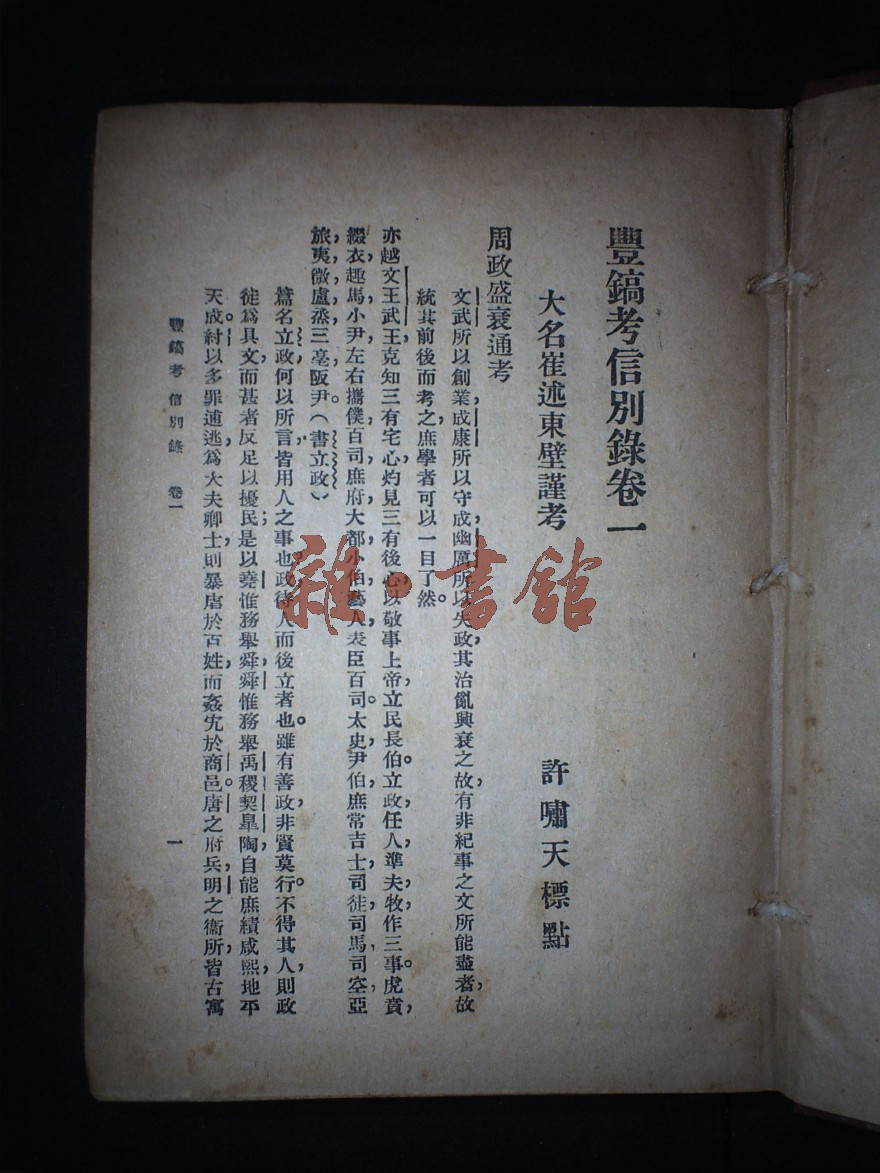 豐鎬考信別錄卷一
大名崔述東壁謹考
許嘯天標點
周政盛衰通考
文武所以創業，成康所以守成，幽厲所以失政，其治亂興衰之故，有非紀事之文所能盡者，故
統其前後而考之，庶學者可以一目了然。
亦越文王武王克知三有宅心，灼見三有後心，以敬事上帝，立民長伯。立政任人準夫牧作三事。虎賁，
綴衣，趣馬，小尹，左右攜僕，百司庶府，大都小伯，藝人，表臣百司。太史，尹伯，庶常吉士，司徒，司馬，司空，亞
旅，夷微盧烝，三亳阪尹。（書立政）
篇名立政，何以所言皆用人之事也，政待人而後立者也。雖有善政，非賢莫行。不得其人，則政
徒爲具文，而甚者反足以擾民；是以堯惟務舉舜，舜惟務舉禹稷契臯陶，自能庶績咸熙，地平
天成。紂以多罪逋逃，爲大夫卿士，則暴虐於百姓，而姦宄於商邑。唐之府兵，明之衞所，皆古寓
豐鎬考信別錄 卷一
一
雜·書館